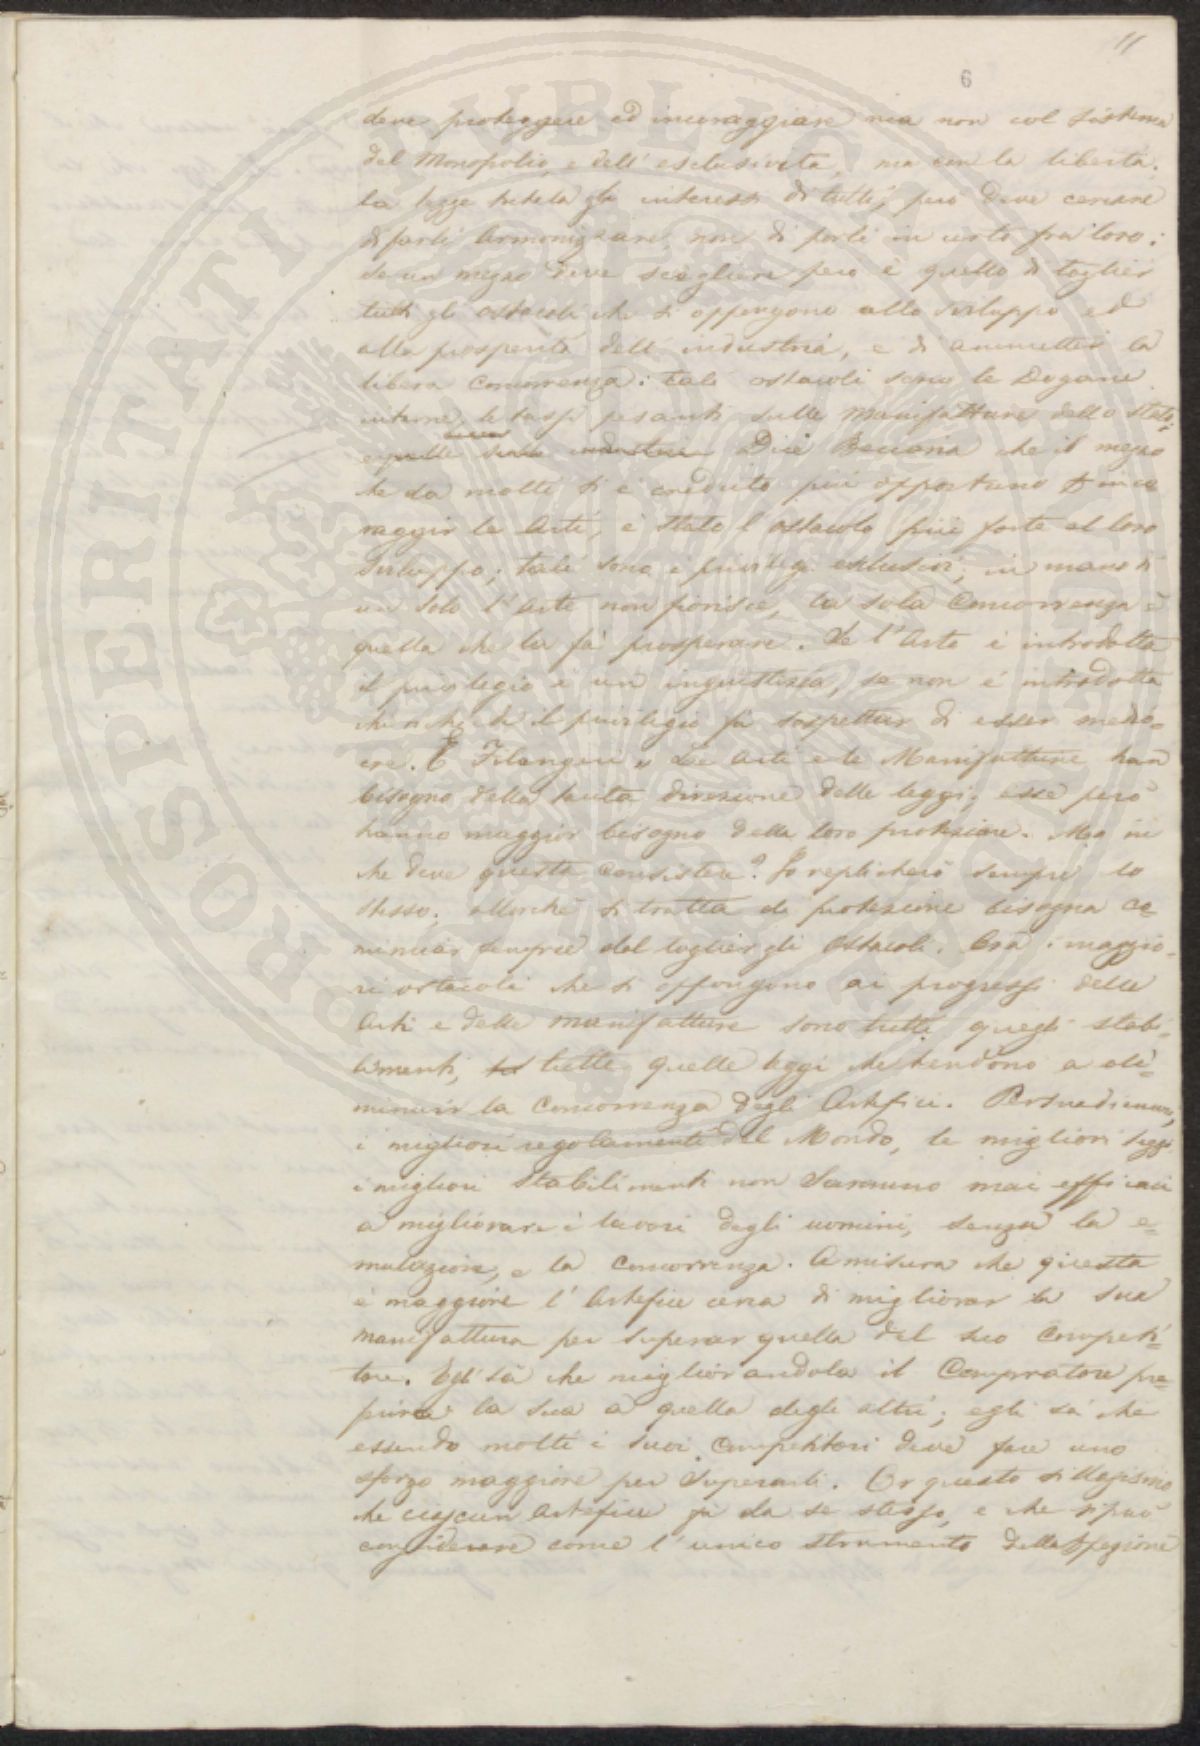 11
6
deve proteggere ed incoraggiare ma non col sistema
del Monopolio, e dell'esclusività, ma con la libertà.
la legge tutela gli interessi di tutti, però deve cercare
di farli armonizzare, non di porli in urto fra loro;
se un mezzo deve scegliere però è quello di toglier
tutti gli ostacoli che si oppongono allo sviluppo ed
alla prosperità dell'industria, e di ammetter la
libera concorrenza: tali ostacoli sono le Dogane
interne, le tasse pesanti sulle manifatture dello stato,
e quelle sulle industrie Dice Beccaria che il mezzo
che da molti si è creduto più opportuno d'inco
raggir le arti, è stato l'ostacolo più forte al loro
sviluppo; tali sono i privilegi esclusivi; in mano di
un solo l'arte non fiorisce, la sola Concorrenza è
quella che la fà prosperare. Se l'arte è introdotta
il privilegio è un ingiustizia, se non è introdotta
chi richiede il privilegio fà sospettar di esser medio=
cre. E Filangeri „ Le arti e le Manifatture han
bisogno della tacita direzione delle leggi, esse però
hanno maggior bisogno della loro protezione. Ma in
che deve questa consistere? Io replicherò sempre lo
stesso; allorchè si tratta di protezione bisogna co=
minciar sempre dal toglier gli ostacoli. Ora i maggio=
ri ostacoli che si oppongono ai progressi delle
Arti e delle manifatture sono tutti quegli stabi=
limenti, tutte quelle leggi che tendono a di=
minuir la concorrenza degli Artefici. Persuadiamoci,
i migliori regolamenti del Mondo, le migliori leggi
i migliori stabilimenti non saranno mai efficaci
a migliorare i lavori degli uomini, senza la e=
mulazione, e la concorrenza. A misura che questa
è maggiore l'Artefice cerca di migliorar la sua
manifattura per superar quella del suo Competi=
tore. Egli sà che migliorandola il Compratore pre=
ferirà la sua a quella degli altri; egli sà che
essendo molti i suoi Competitori deve fare uno
sforzo maggiore per superarli. Or questo sillogismo
che ciascun artefice fà da se stesso, e che si può
considerare come l'unico strumento della
PROSPERITATI PUBLICAE